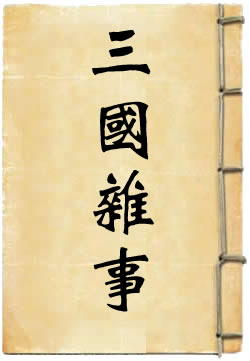 三國雜事